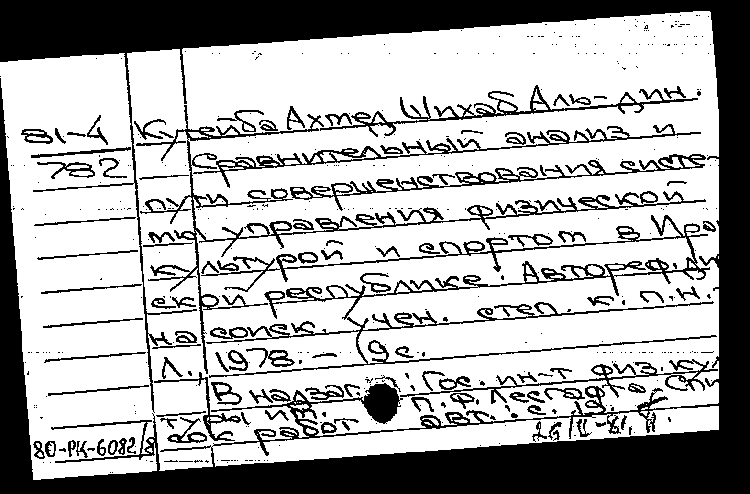 81-4
782
Кутейба Ахмед Шихаб Аль-дин.
Сравнительный анализ и
пути совершенствования систе-
мы управления физической
культурой и спортом в Ирак
ской республике: Автореф. ди
на соиск. учен. степ. к. п. н. -
Л., 1978. - 19 с.
В надзаг.: Гос. ин-т физ. кул
туры им. П.Ф. Лесгафта. Спи
сок работ авт.: с. 19.
80-РК-6082/8